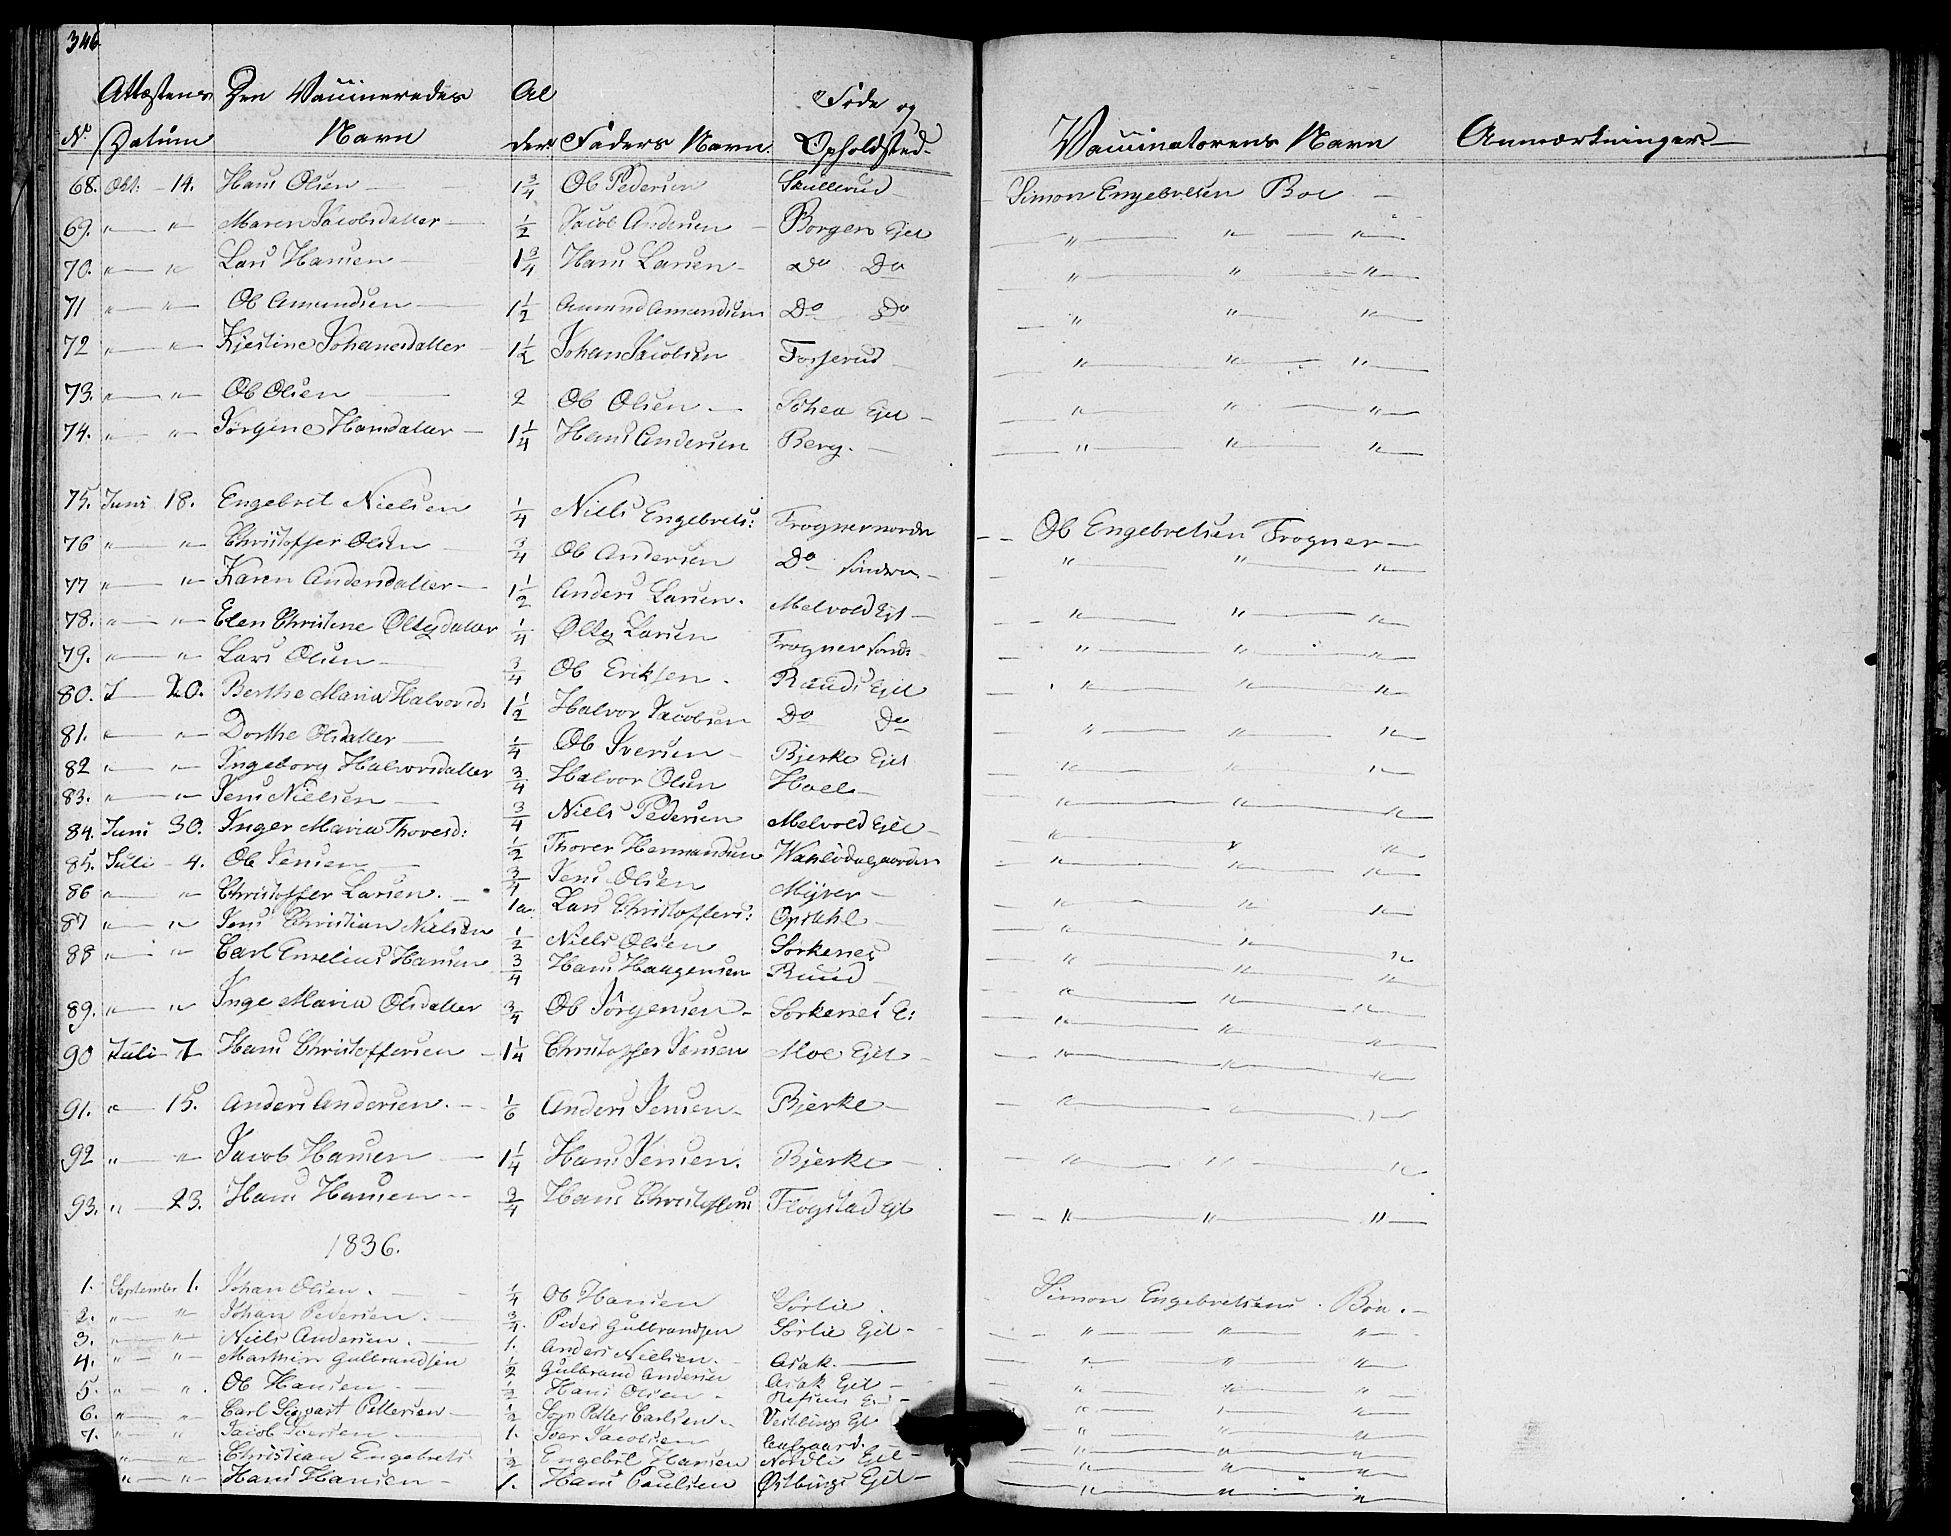 346
Attestens Datum Den Vaccineredes Navn Alder Faders Navn Føde og Opholdsted Vaccinatorens Navn Anmærkninger
68. Oct: 14. Hans Olsen 1 3/4 Ole Pedersen Skullerud Simon Engebretsen Boe
69. " " Maren Jacobsdatter 1/2 Jacob Andersen Borgen Ejet " " "
70. " " Lars Hansen 1 3/4 Hans Larsen Do Do " " "
71 " " Ole Amundsen 1 1/2 Amund Amundsen Do Do " " "
72 " " Kjestine Johanesdatter 1 1/2 Johan Jacobsen Fosserud " " "
73. " " Ole Olsen 2 Ole Olsen Ejet " " "
74. " " Jørgine Hansdatter 1 1/4 Hans Andersen Berg. " " "
75. Juni 18. Engebret Nielsen 1/4 Niels Engebrets: Frogner nordre Ole Engebretsen Frogner
76 " " Christoffer Olsen 3/4 Ole Andersen Do søndre " " "
77 " " Karen Andersdatter 1 1/2 Anders Larsen. Melvold Ejet " " "
78. " " Elen Christine Oltsdatter 1/4 Larsen Frogner sønd: " " "
79. " " Lars Olsen 3/4 Ole Eriksen Ejet " " "
80. J 20. Berthe Maria Halvorsd. 1 1/2 Halvor Jacobsen Do Do " " "
81. " " Dorthe Olsdatter 1/4 Ole Iversen Bjerke Ejet " " "
82 " " Ingeborg Halvorsdatter 3/4 Halvor Olsen Holl " " "
83. " " Jens Nielsen 3/4 Niels Pedersen Melvold Ejet " " "
84. Juni 30. Inger Maria Thoresd: 1/2 Thorer Hermandsen " " "
85. Juli 4. Ole Jensen 3/4 Jens Olsen Myrer " " "
86 " " Christoffer Larsen. 1 a Lars Christoffers: Opsahl " " "
87 " " Jens Christian Nielsen 1/2 Niels Olsen Sørkenes " " "
88 " " Carl Emelius Hansen 3/4 Hans Haagensen Ruud " " "
89. " " Inge Maria Olsdatter 3/4 Ole Jørgensen Sørkenes E: " " "
90 Juli 7 Hans Christoffersen 1 1/4 Christoffer Jensen Moe Ejet " " "
91. " 15. Anders Andersen. 1/6 Anders Jensen Bjerke " " "
92 " " Jacob Hansen 1 1/4 Hans Jensen. Bjerke " " "
93. " 23. Hans Hansen 3/4 Hans Christoffers Flogstad Ejt " " "
1836.
1. September 1. Johan Olsen. 1/4 Ole Hansen Sørlie. Simon Engebretsens Boe.
2. " " Johan Pedersen. 3/4 Peder Gulbrandsen Sørlie Ejet " " "
3. " " Niels Andersen. 1. Anders Nielsen. Asak. " " "
4. " " Mathin Gulbrandsen 1/2 Gulbrand Andersen Asak Ejet " " "
5. " " Ole Hansen 1/2 Hans Olsen " " "
6. " " Carl Sigvart Pettersen 1/2 Petter Carlsen Vestbÿe Ejt " " "
7. " " Jacob Iversen 1. Iver Jacobsen " " "
" " Christian Engebrets 1/2 Engebret Hansen Nordli Ejet " " "
" " Hans Hansen 1. Hans Poulsen Østbÿe Ejet " " "